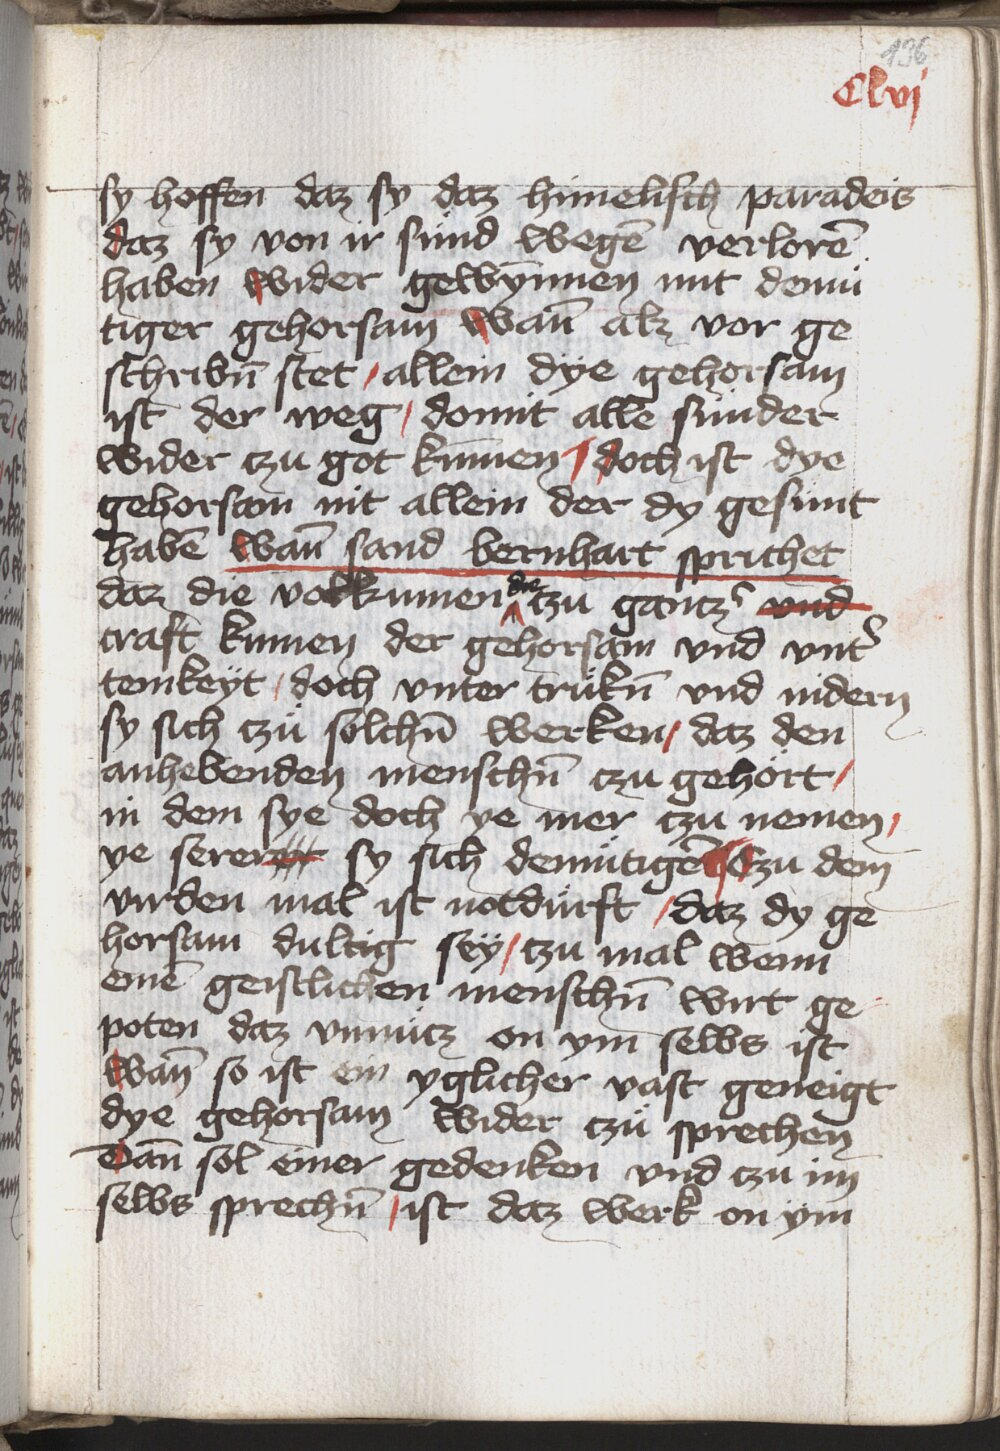 136
Clvj
sy hoffen daz sy daz himelisch paradeis
daz sy von ir sünd wegē verlorē
haben wider gewȳnnen mit demü
tiger gehorsam wan̄ alz vor ge
schribn̄ stet / allein dÿe gehorsam
ist der weg / domit alle sünder
wider czu got kūmen / doch ist dye
gehorsam nit allein der dy gesünt
habē wan̄ sand bernhart sprichet
daz die volkumen die czu gantz' vnd
craft kumen der gehorsam vnd vnt'
tenikeyt / doch vnter trükn̄ vnd nidern
sy sich czü solchn̄ werken / daz den
anhebenden menschn̄ czu gehört /
in dem sye doch ye mer czu nemen /
ye serer sy sich demütigē Czu dem
virden mal ist notdürft / daz dy ge
horsam dultig seÿ / czu mal wenn
einē geistlichen menschn̄ wirt ge
poten daz vnnücz on ym selbs ist
wan̄ so ist ein yglicher vast geneigt
dye gehorsam wider czü sprechen
Dan̄ sol einer gedenken vnd czu im
selbs sprechn̄ / ist daz werk on ym